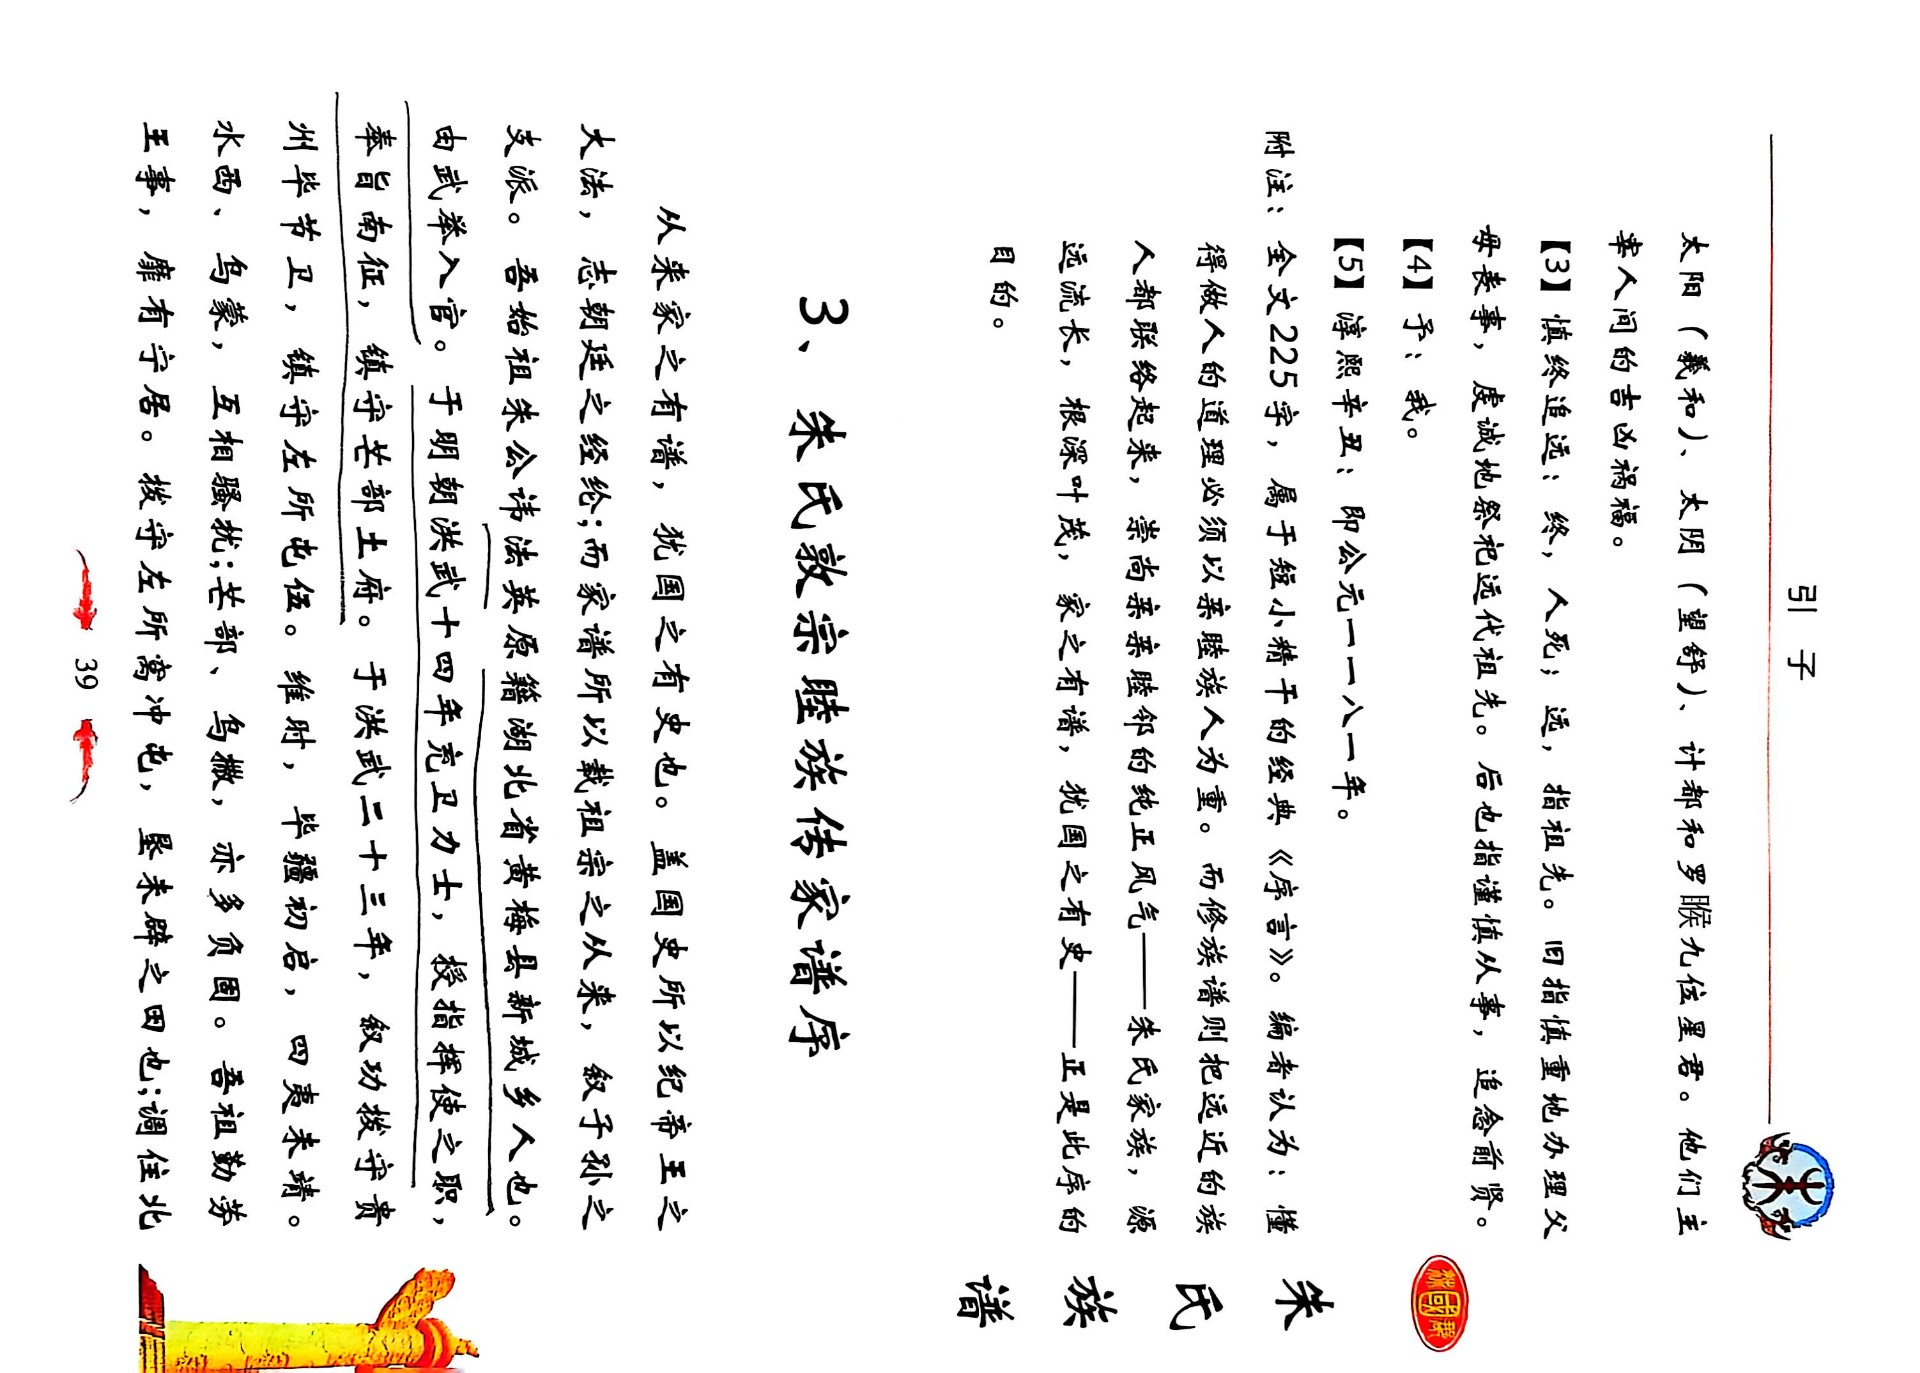 引 子
太阳（羲和）、太阴（望舒）、计都和罗睺九位星君。他们主
宰人间的吉凶祸福。
【3】慎终追远：终，人死；远，指祖先。旧指慎重地办理父
母丧事，虔诚地祭祀远代祖先。后也指谨慎从事，追念前贤。
【4】予：我。
【5】淳熙辛丑：即公元一一八一年。
附注：全文225字，属于短小精干的经典《序言》。编者认为：懂
得做人的道理必须以亲睦族人为重。而修族谱则把远近的族
人都联络起来，崇尚亲亲睦邻的纯正风气——朱氏家族，源
远流长，根深叶茂，家之有谱，犹国之有史——正是此序的
目的。
3、朱氏敦宗睦族传家谱序
从来家之有谱，犹国之有史也。盖国史所以纪帝王之
大法，志朝廷之经纶；而家谱所以载祖宗之从来，叙子孙之
支派。吾始祖朱公讳法英原籍湖北省黄梅县新城乡人也。
由武举入官。于明朝洪武十四年充卫力士，授指挥使之职，
奉旨南征，镇守芒部土府。于洪武二十三年，叙功拨守贵
州毕节卫，镇守左所屯伍。维时，毕疆初启，四夷未靖。
水西、乌蒙，互相骚扰；芒部、乌撒，亦多负固。吾祖勤劳
王事，靡有宁居。拨守左所窝冲屯，垦未辟之田也；调住北
39
朱氏族谱